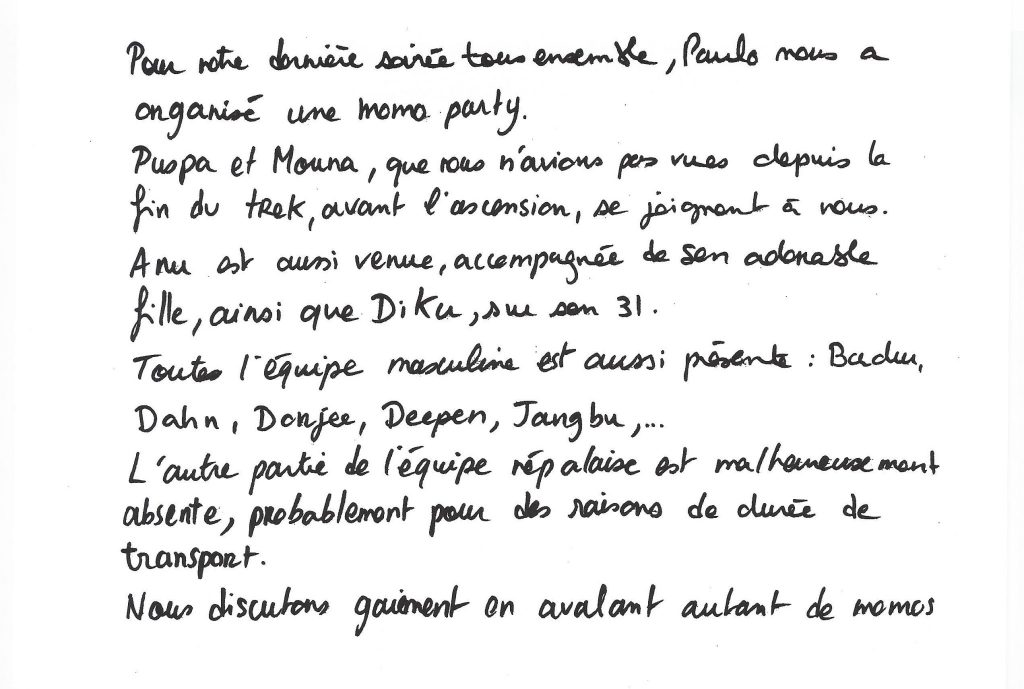 Pour notre dernière soirée tous ensemble, Paulo nous a
organisé une momo party.
Puspa et Mouna, que nous n'avions pas vues depuis la
fin du trek, avant l'ascension, se joignent à nous.
Anu est aussi venue, accompagnée de son adorable
fille, ainsi que Diku, sur son 31.
Toutes l'équipe masculine est aussi présente : Badu,
Dahn, Donjee, Deepen, Jangbu,...
L'autre partie de l'équipe népalaise est malheureusement
absente, probablement pour des raisons de durée de
transport.
Nous discutons gaiement en avalant autant de momos